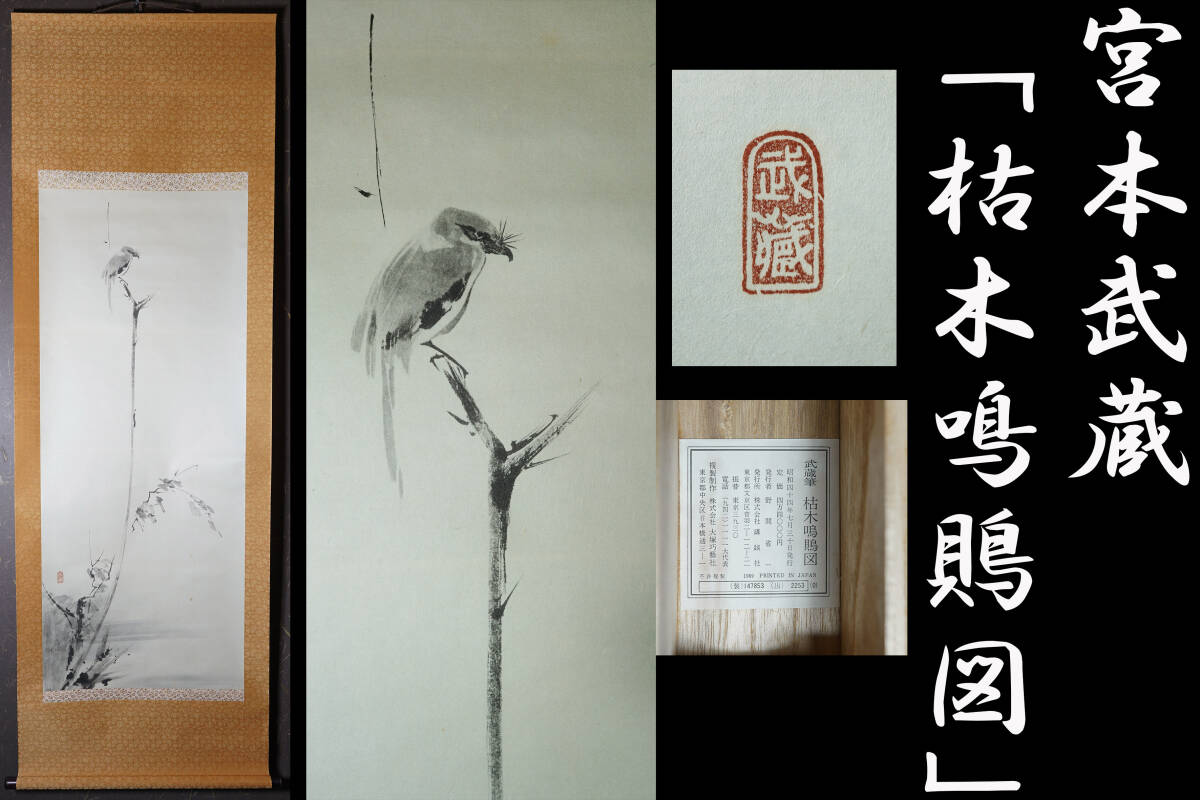 宮本武蔵
「枯木鳴鵙図」
武藏
武蔵筆 枯木鳴鵙図
昭和四十四年七月三十日発行
定価 四万四〇〇〇円
発行者 野間省一
発行所 株式会社 講談社
東京都文京区音羽二―一二―二一
振替 東京三九三〇
電話
大代表
複製制作 株式会社 大塚巧藝社
東京都中央区日本橋通三―一
不許複製
1969 PRINTED IN JAPAN
(製)147853 (出)2253